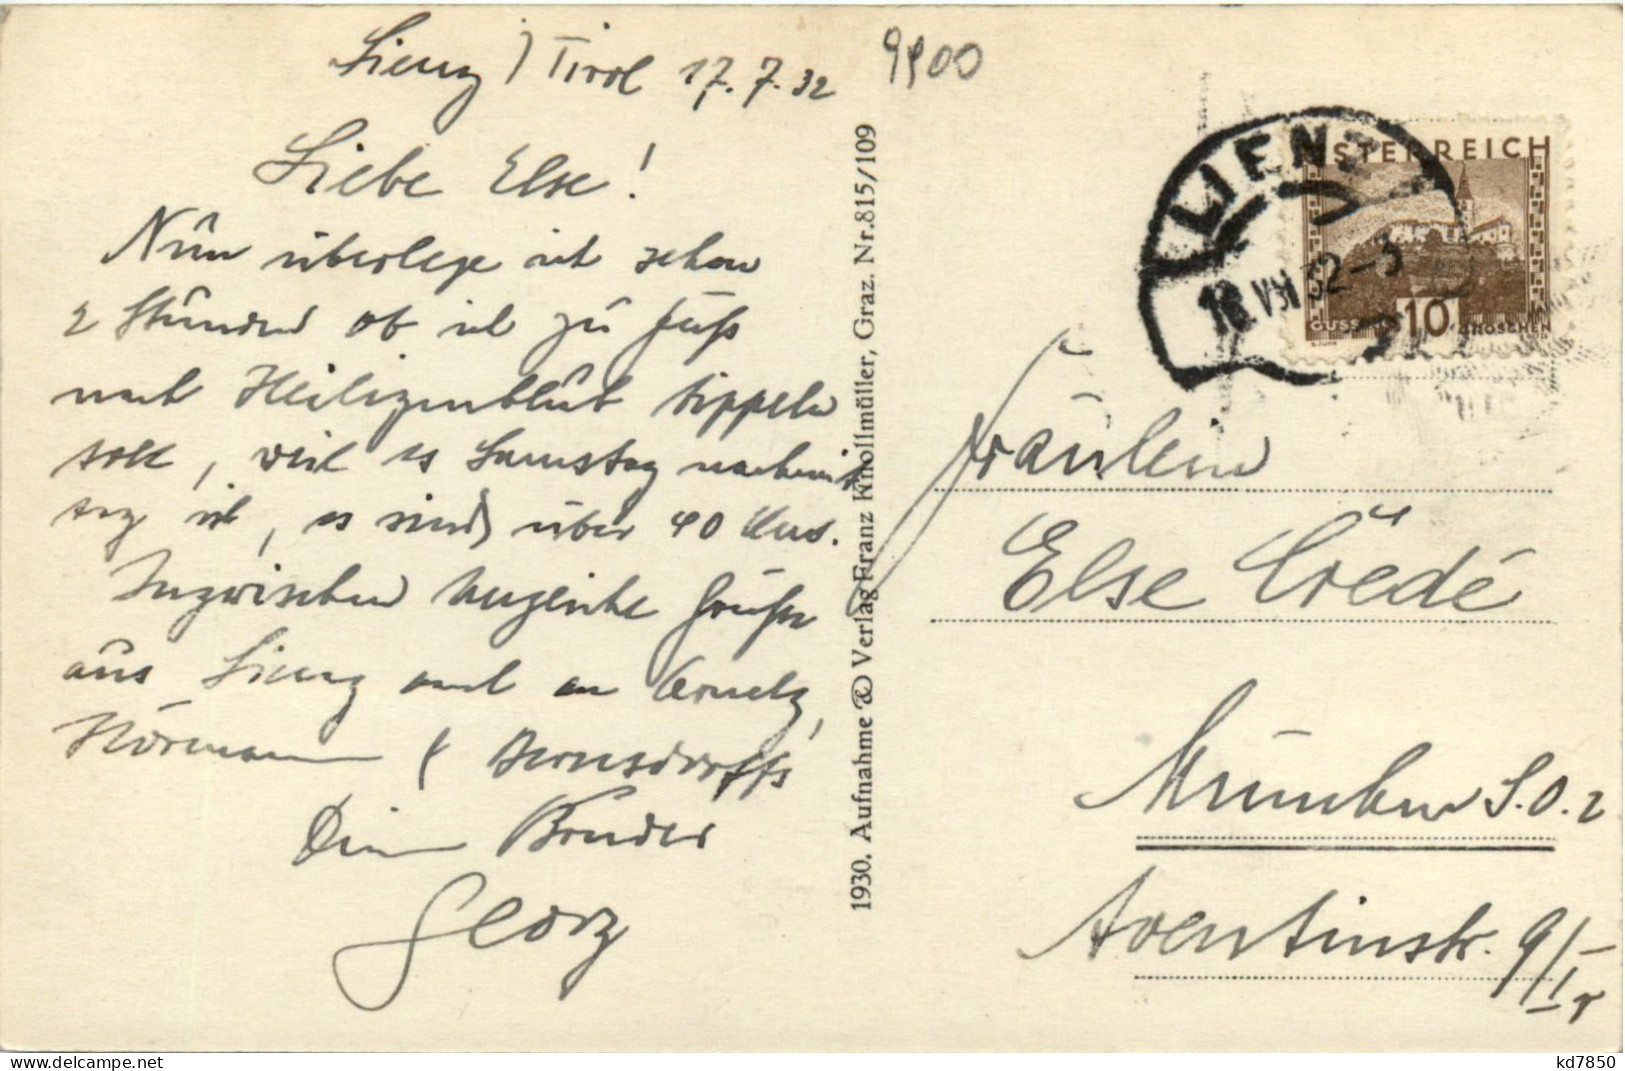 Lienz / Tirol 17.7.32
9900
Liebe Else!
Nun überlege ich schon
2 Stunden ob ich zu Fuß
nach Heiligenblut tippeln
soll, weil es Samstag nachmit
tag ist, es sind über 40 Klm.
Inzwischen herzliche Grüße
aus Lienz auch an
Hörmann &
Dein Bruder
Georg
1930. Aufnahme & Verlag Franz Knollmüller, Graz. Nr. 815/109
LIENZ
18 VII 32-3
ÖSTERREICH
GÜSSING 10 GROSCHEN
Fräulein
Else Credé
München S.O. 2
Aventinstr. 9/I r
kd7850